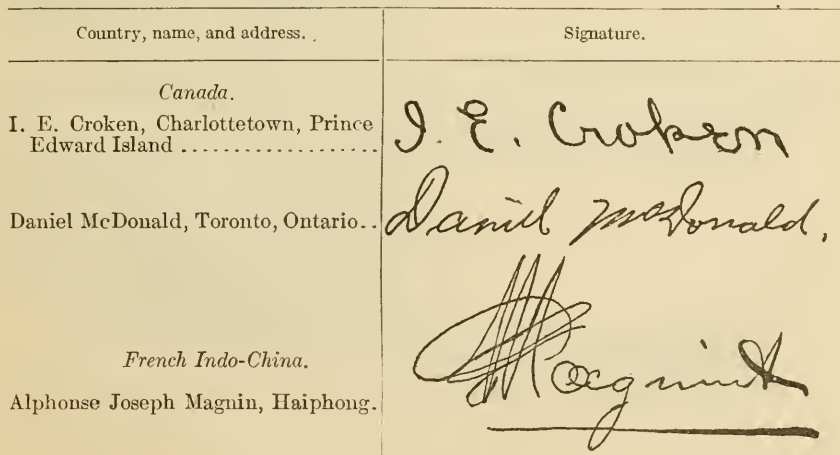 Country, name, and address.
Signature.
Canada.
I. E. Croken, Charlottetown, Prince
Edward Island ..................
I. E. Croken
Daniel McDonald, Toronto, Ontario..
Daniel McDonald.
French Indo-China.
Alphonse Joseph Magnin, Haiphong.
Magnin